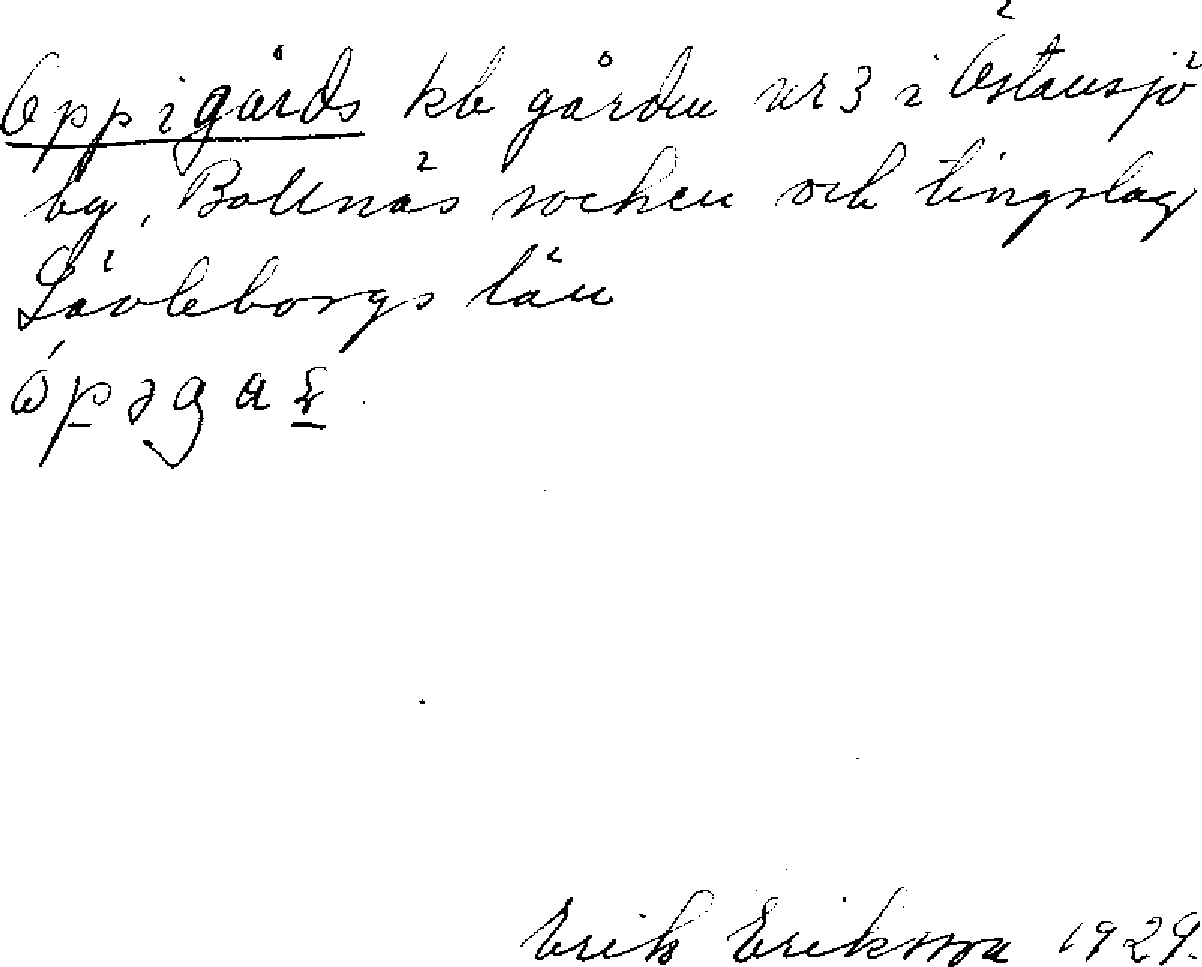 Oppigårds kb gården nr 3 i Östansjö
by, Bollnäs socken och tingslag
Gävleborgs län
Erik Eriksson 1929.